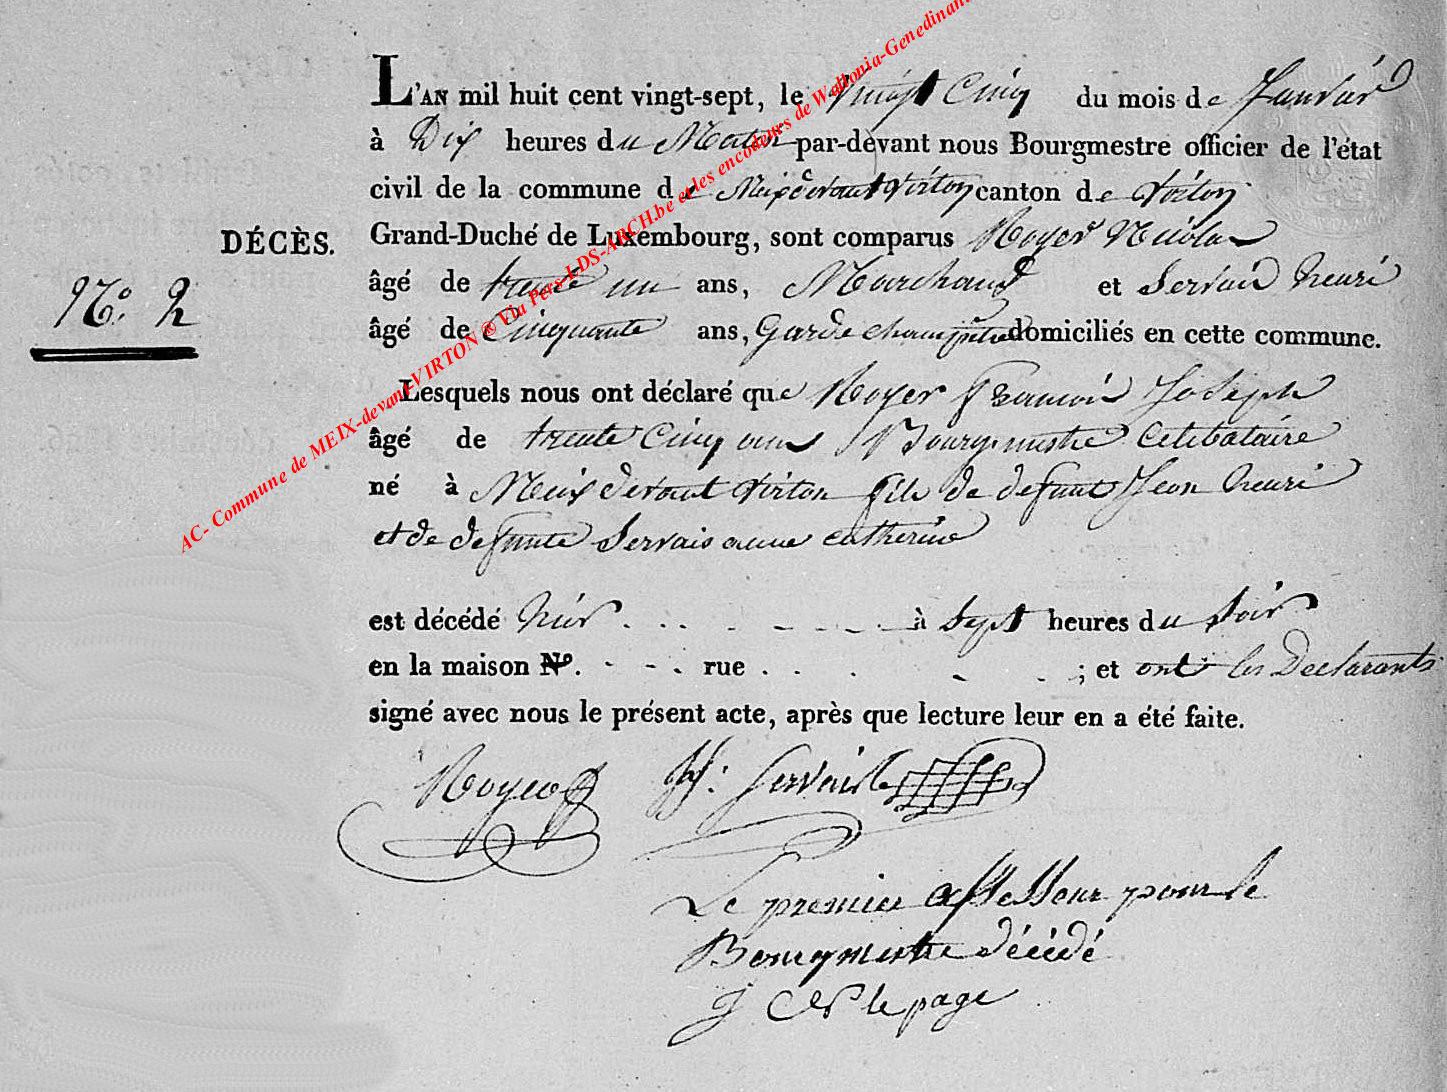 L'AN mil huit cent vingt-sept, le vingt Cinq du mois de Janvier
à Dix heures du Matin par-devant nous Bourgmestre officier de l'état
civil de la commune de Meix devant Virton canton de Virton
DÉCÈS.
Grand-Duché de Luxembourg, sont comparus Royer Nicolas
N.o 2
âgé de trente un ans, Marchand et Servais henri
âgé de Cinquante ans, Garde champetre domiciliés en cette commune.
Lesquels nous ont déclaré que Royer François Joseph
âgé de trente Cinq ans Bourgmestre Celibataire
né à Meix devant Virton fils de defunt Jean henri
et de defunte Servais anne catherine
est décédé hier à Sept heures du Soir
en la maison No. rue ; et ont les Declarants
signé avec nous le présent acte, après que lecture leur en a été faite.
Royer H: Servais
Le premier assesseur pour le
Bourgmestre décédé
J le page
AC- Commune de MEIX-devant-VIRTON ® Via Pers-LDS-ARCH.be et les encodeurs de Wallonia-Genedinant